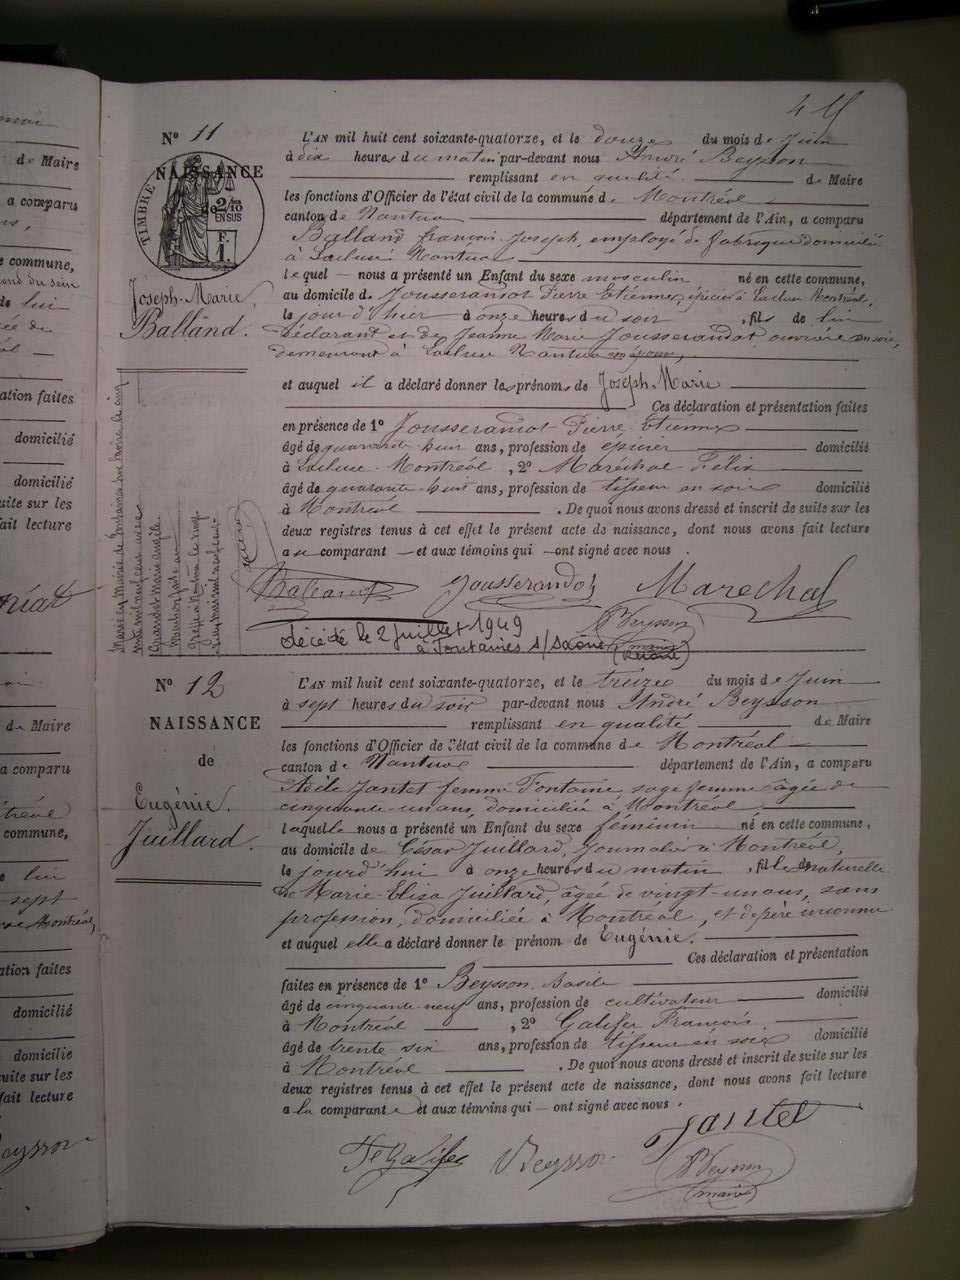 N° 11
NAISSANCE
de
TIMBRE
2/10
EN SUS
F.
1.
Joseph-Marie
Balland.
L'AN mil huit cent soixante-quatorze, et le douze du mois de Juin
à dix heures du matin par-devant nous André Beysson
remplissant en qualité de Maire
les fonctions d'Officier de l'état civil de la commune de Montréal
canton de Nantua département de l'Ain, a comparu
Balland françois Joseph, employé de fabrique domicilié
à Lacluse Nantua
lequel nous a présenté un Enfant du sexe masculin né en cette commune,
au domicile de Jousserandot Pierre Etienne, épicier à Lacluse Montréal,
le jour d'hier à onze heures du soir, fils de lui
déclarant et de Jeanne Marie Jousserandot ouvrière en soie,
demeurant à Lacluse Nantua
et auquel il a déclaré donner les prénoms de Joseph-Marie
Ces déclaration et présentation faites
en présence de 1° Jousserandot Pierre Etienne
âgé de quarante huit ans, profession de épicier domicilié
à Lacluse-Montréal, 2° Maréchal Félix
âgé de quarante-huit ans, profession de tisseur en soie domicilié
à Montréal. De quoi nous avons dressé et inscrit de suite sur les
deux registres tenus à cet effet le présent acte de naissance, dont nous avons fait lecture
au comparant et aux témoins qui ont signé avec nous.
Balland Jousserandot Marechal
Beysson
maire
décédé le 2 juillet 1949
à Fontaines s/Saône
(Rhône)
N° 12
NAISSANCE
de
Eugénie
Juillard.
L'AN mil huit cent soixante-quatorze, et le treize du mois de Juin
à sept heures du soir par-devant nous André Beysson
remplissant en qualité de Maire
les fonctions d'Officier de l'état civil de la commune de Montréal
canton de Nantua département de l'Ain, a comparu
Jantet femme Fontaine, sage femme âgée de
cinquante-un ans, domiciliée à Montréal
laquelle nous a présenté un Enfant du sexe féminin né en cette commune,
au domicile de César Juillard, Journalier à Montréal,
le jourd'hui à onze heures du matin, fille naturelle
de Marie Elisa Juillard, âgée de vingt-un ans, sans
profession, domiciliée à Montréal, et de père inconnu
et auquel elle a déclaré donner le prénom de Eugénie.
Ces déclaration et présentation
faites en présence de 1° Beysson Basile
âgé de cinquante-neuf ans, profession de cultivateur domicilié
à Montréal, 2° Galifer François
âgé de trente six ans, profession de tisseur en soie domicilié
à Montréal. De quoi nous avons dressé et inscrit de suite sur les
deux registres tenus à cet effet le présent acte de naissance, dont nous avons fait lecture
a la comparante et aux témoins qui ont signé avec nous.
Jantet
Galifer Beysson Beysson
(maire)
de Maire
a comparu
commune,
lui
ation faites
domicilié
domicilié
uite sur les
fait lecture
de Maire
a comparu
commune,
lui
sept
Montréal,
ation faites
domicilié
domicilié
uite sur les
fait lecture